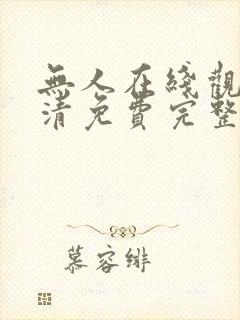 無人在綫觀
清免費完整
慕容緋